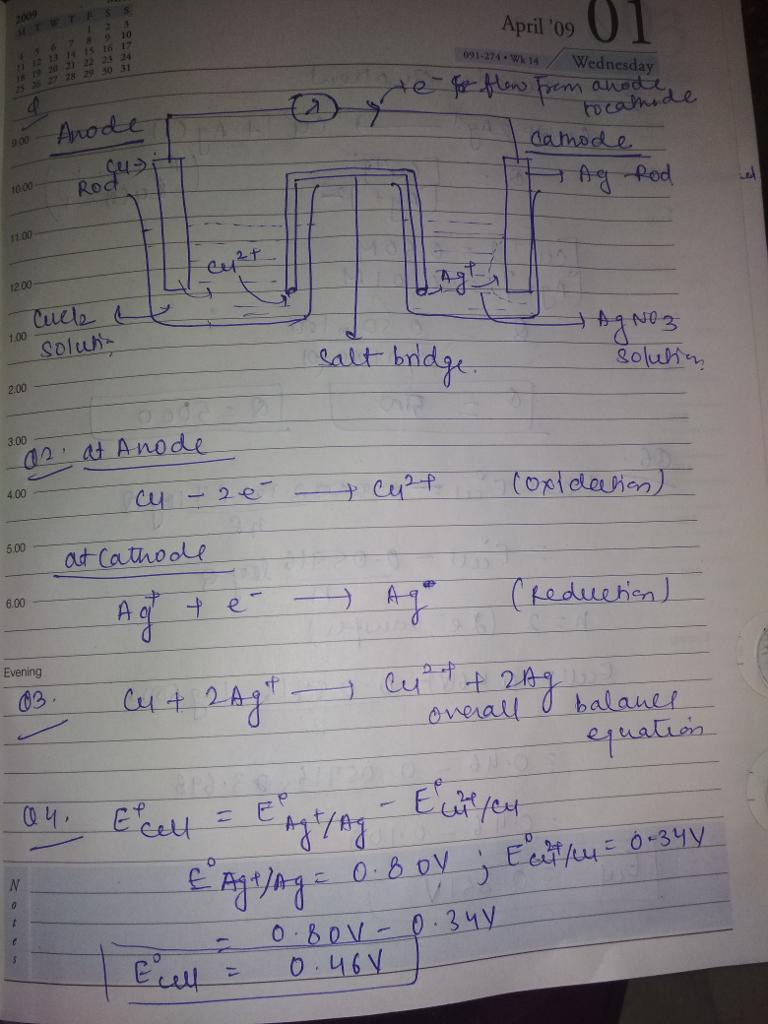 2009
M T W T F S S
1 2 3
4 5 6 7 8 9 10
11 12 13 14 15 16 17
18 19 20 21 22 23 24
25 26 27 28 29 30 31
April '09 01
091-274 • Wk 14 Wednesday
e- flow from anode
to cathode
Anode
Cathode
9.00
Cu
Rod
Ag Rod
10.00
11.00
Cu2+
Ag+
12.00
CuCl2
solution
AgNO3
solution
1.00
salt bridge.
2.00
3.00
Q2. at Anode
4.00 Cu - 2e- → Cu2+ (oxidation)
5.00
at Cathode
6.00 Ag+ + e- → Ag (Reduction)
Evening
Q3. Cu + 2Ag+ → Cu2+ + 2Ag
overall balance
equation
Q4. E°cell = E°Ag+/Ag - E°Cu2+/Cu
E°Ag+/Ag = 0.80V ; E°Cu2+/Cu = 0.34V
Notes
= 0.80V - 0.34V
E°cell = 0.46V